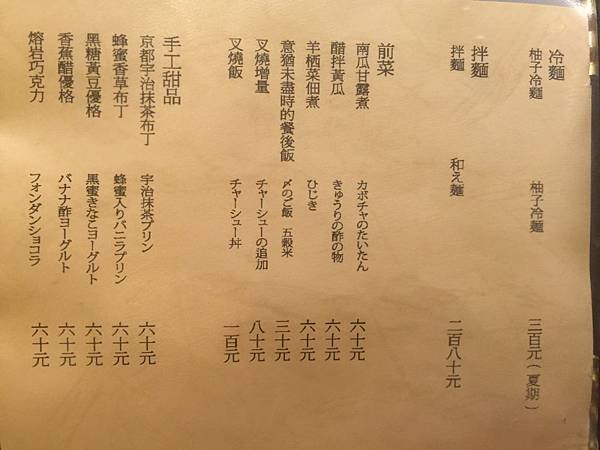 冷麵
柚子冷麵 柚子冷麵 三百元(夏期)
拌麵
拌麵 和え麵 二百八十元
前菜
南瓜甘露煮 カボチャのたいたん 六十元
醋拌黃瓜 きゅうりの酢の物 六十元
羊栖菜佃煮 ひじき 六十元
意猶未盡時的餐後飯 〆のご飯 五穀米 三十元
叉燒增量 チャーシューの追加 八十元
叉燒飯 チャーシュー丼 一百元
手工甜品
京都宇治抹茶布丁 宇治抹茶プリン 六十元
蜂蜜香草布丁 蜂蜜入りバニラプリン 六十元
黑糖黃豆優格 黒蜜きなこヨーグルト 六十元
香蕉醋優格 バナナ酢ヨーグルト 六十元
熔岩巧克力 フォンダンショコラ 六十元